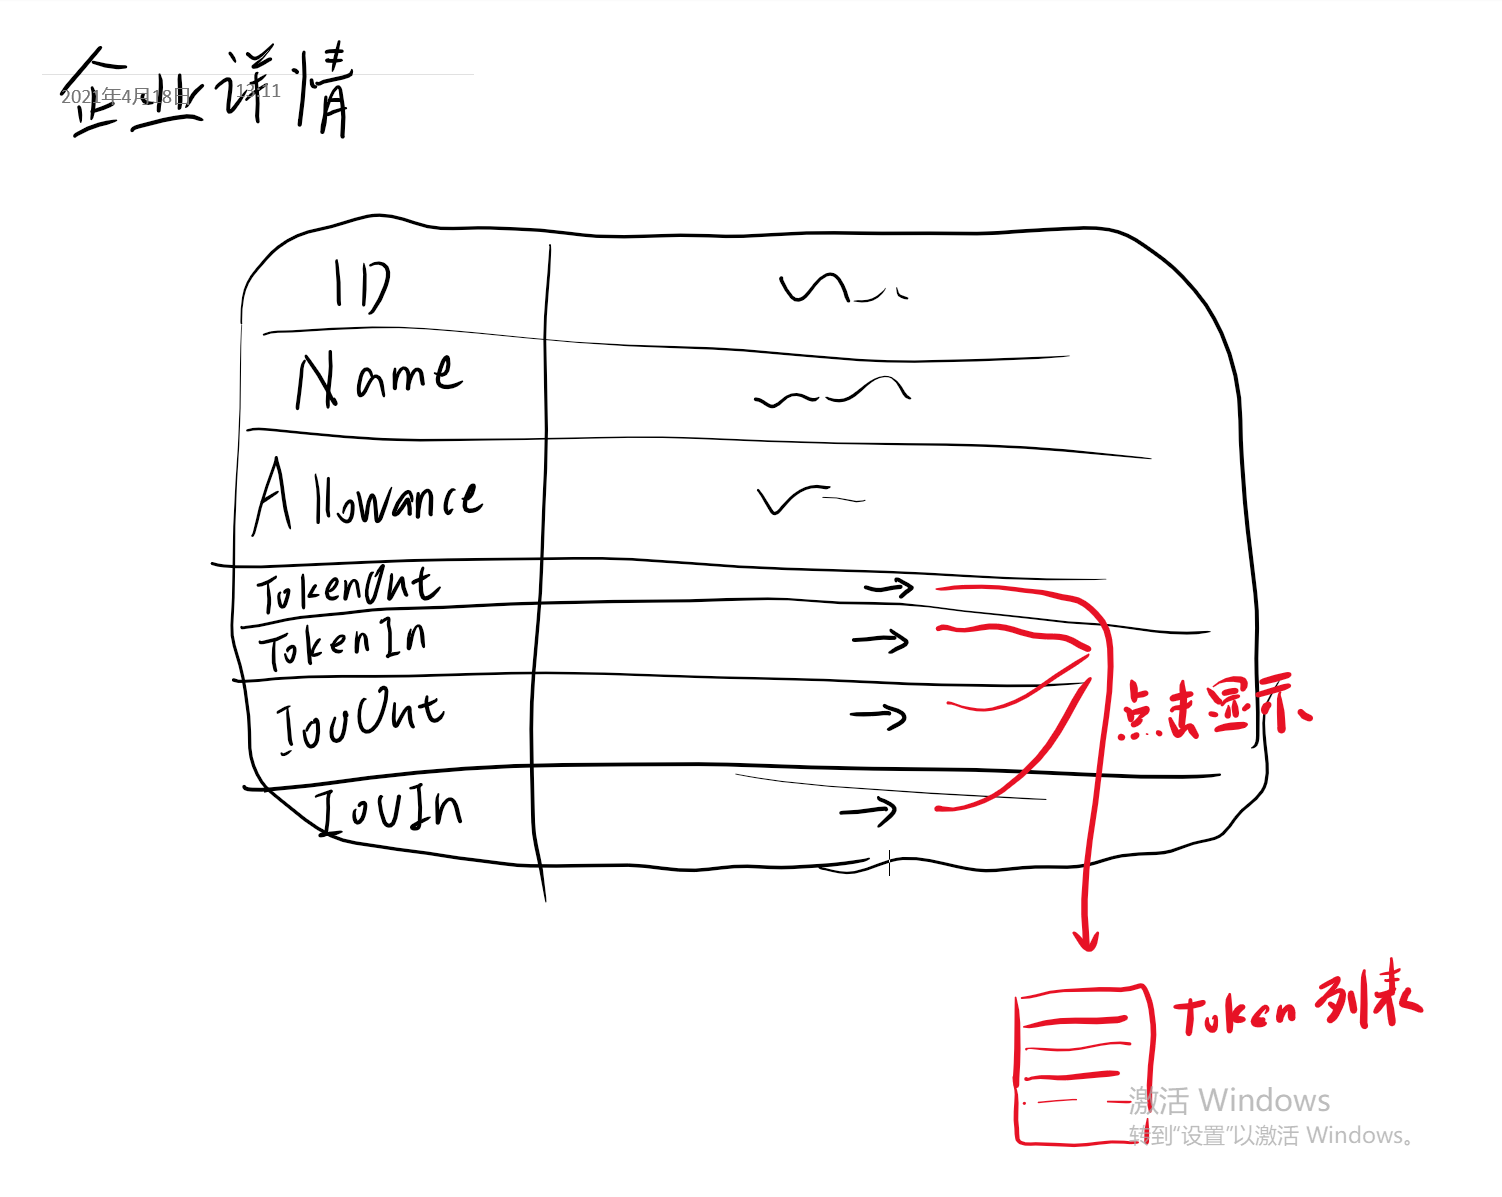 企业详情
2021年4月18日 13:11
ID
Name
Allowance
TokenOut
TokenIn
IouOut
点击显示
IouIn
Token 列表
激活 Windows
转到“设置”以激活 Windows。